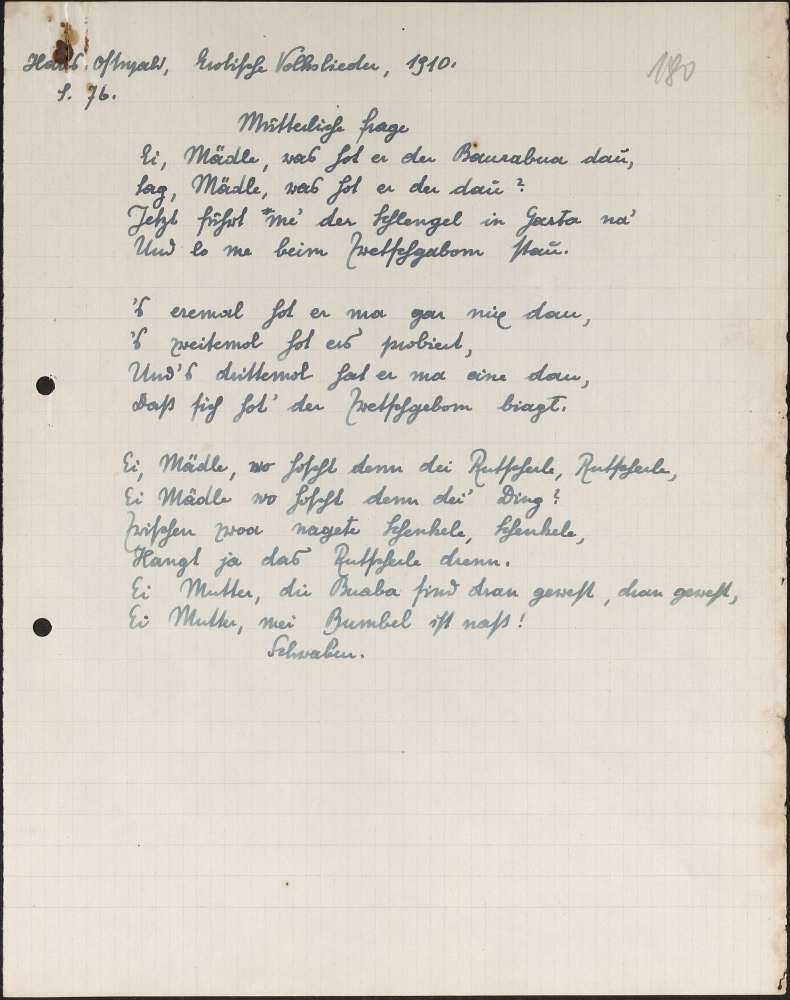 Hans Ostwald, Erotische Volkslieder, 1910.
180
S. 76.
Mütterliche Frage
Ei, Mädle, was hot er der Baurabua dau,
sag, Mädle, was hot er der dau?
Jetzt führt me' der Schlengel in Garta na'
Und lo me beim Zwetschgabom stau.
's eremal hot er ma gar nix dau,
's zweitemol hot ers probiert,
Und's drittemol hat er ma eine dau,
Daß sich hot' der Zwetschgebom biagt.
Ei, Mädle, wo hoscht denn dei Rutscherle, Rutscherle,
Ei Mädle wo hoscht denn dei' Ding?
Zwischen zwoa nagete Schenkele, Schenkele,
Hangt ja das Rutscherle drenn.
Ei Mutter, die Buaba sind dran gewest, dran gewest,
Ei Mutter, mei Bumbel ist naß!
Schwaben.